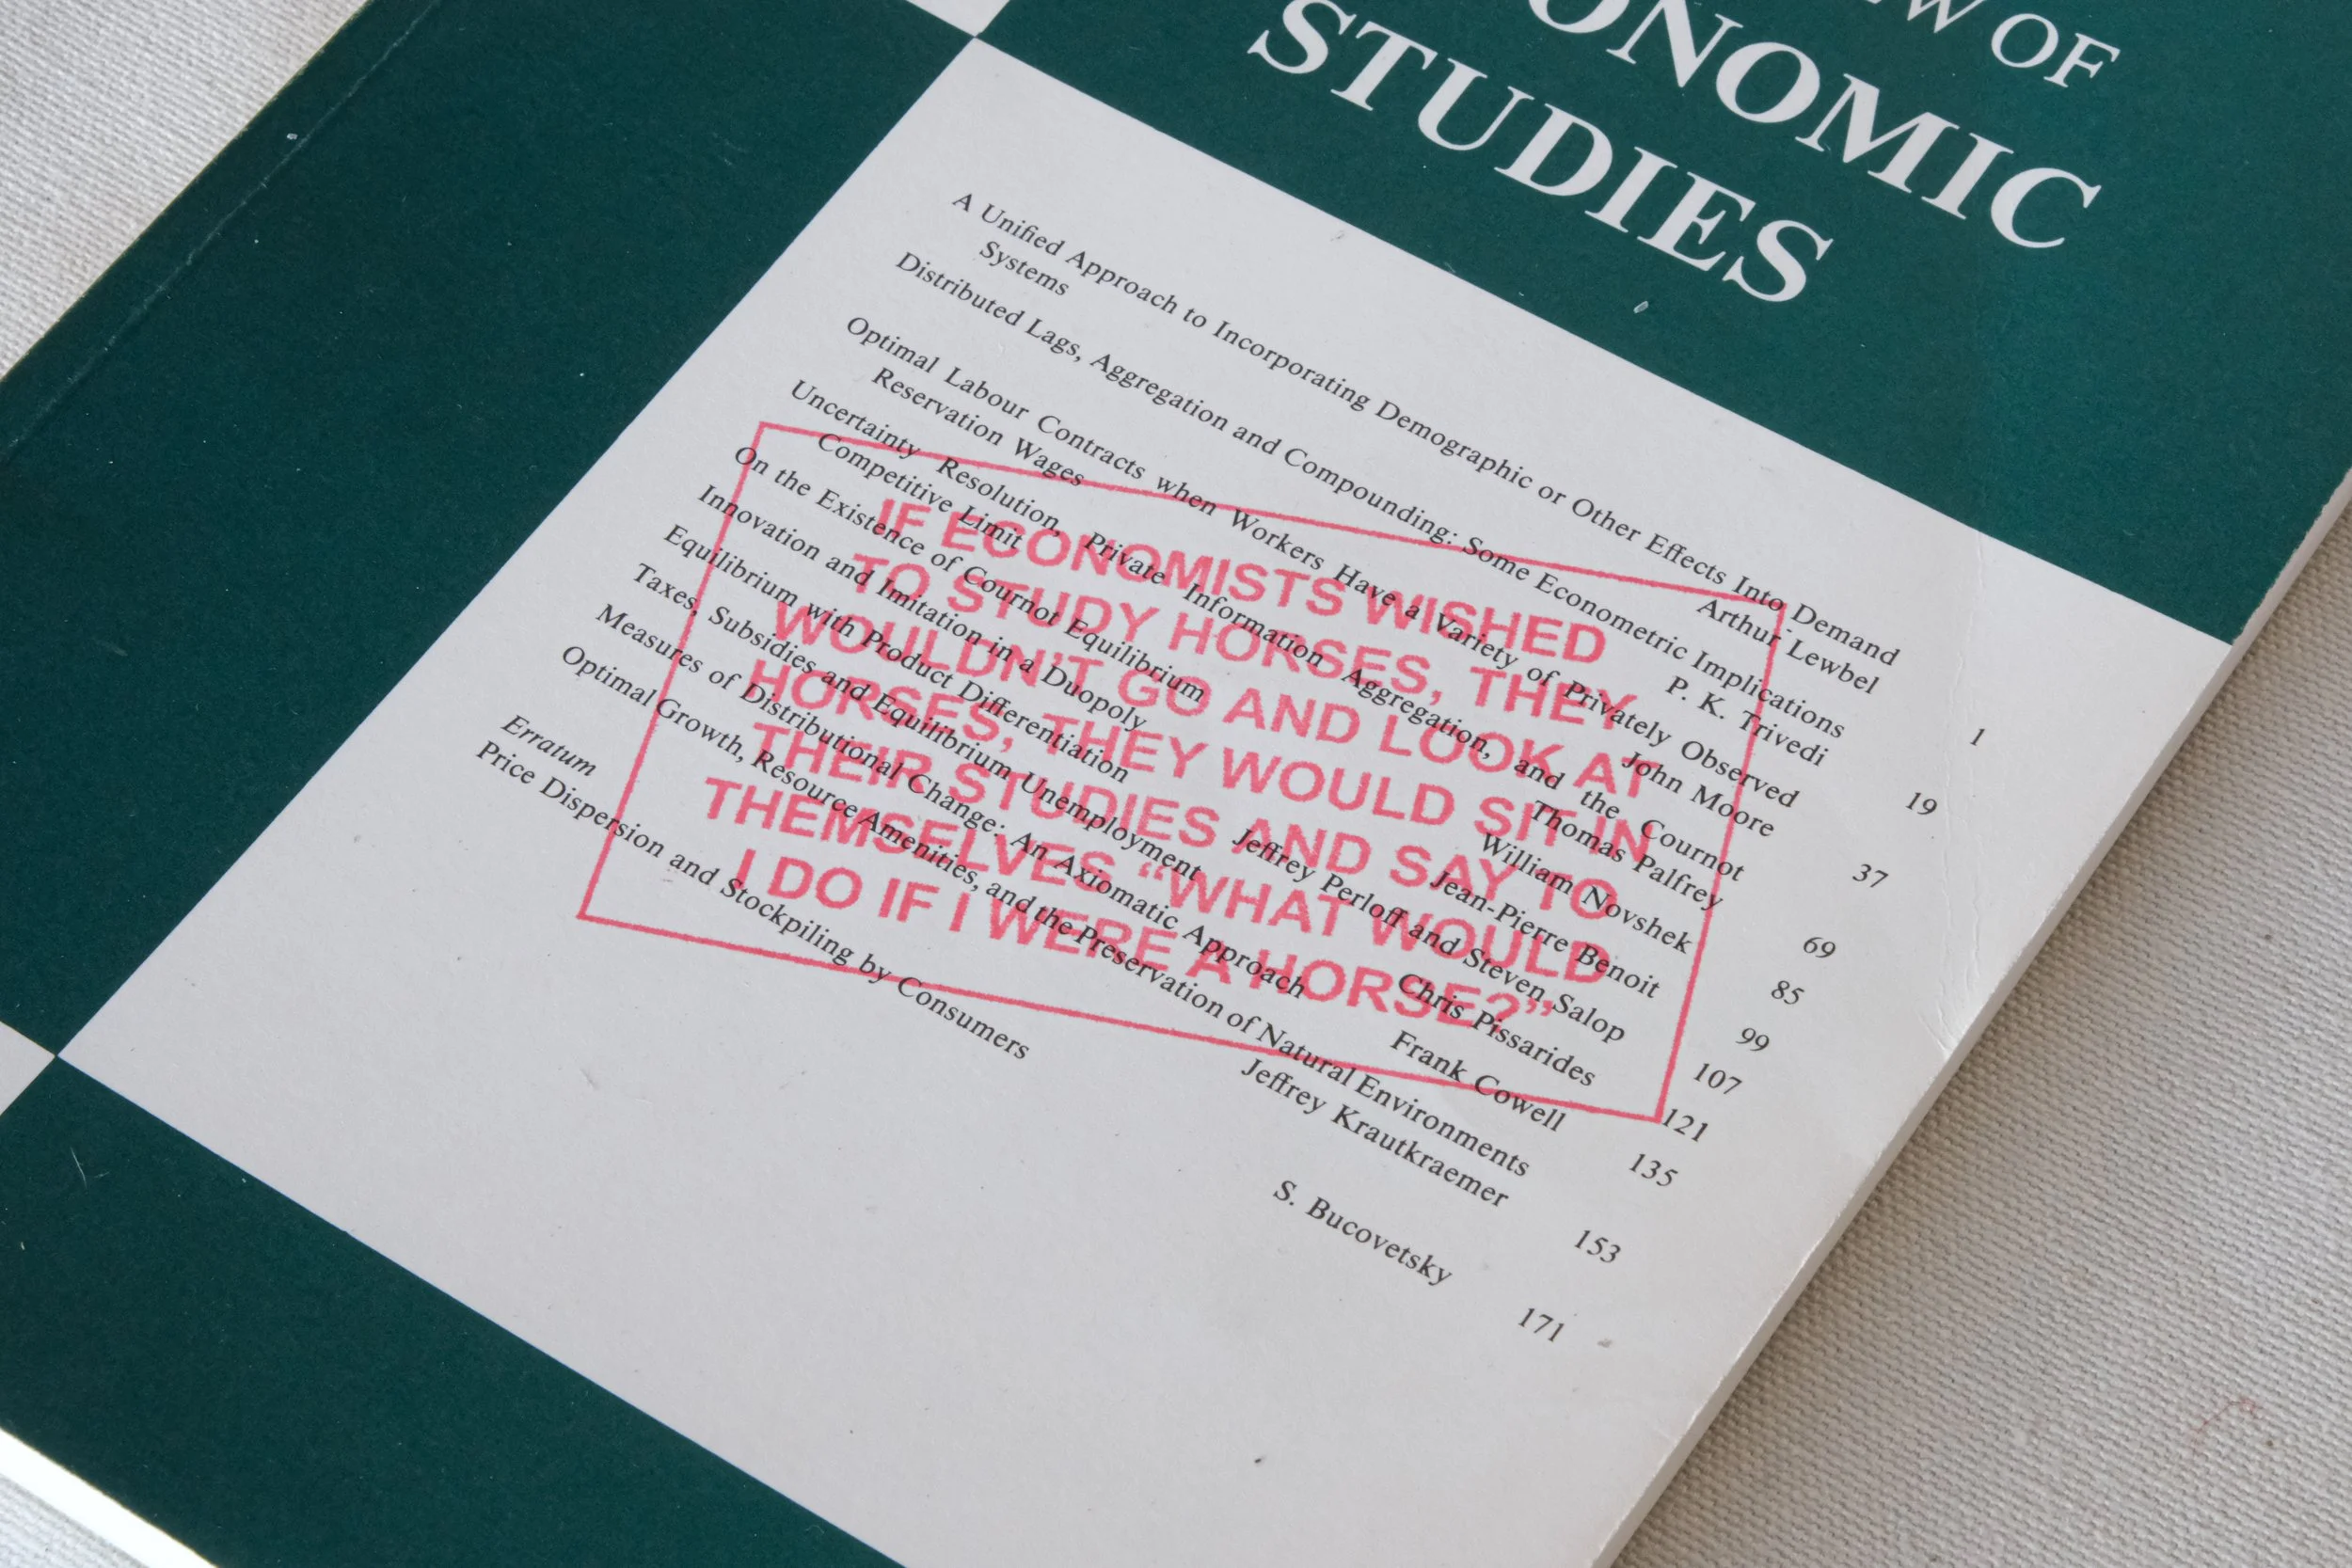 EW OF
ONOMIC
STUDIES
A Unified Approach to Incorporating Demographic or Other Effects Into Demand
Systems Arthur Lewbel 1
Distributed Lags, Aggregation and Compounding: Some Econometric Implications
P. K. Trivedi 19
Optimal Labour Contracts when Workers Have a Variety of Privately Observed
Reservation Wages John Moore 37
Uncertainty Resolution, Private Information Aggregation, and the Cournot
Competitive Limit Thomas Palfrey 69
On the Existence of Cournot Equilibrium William Novshek 85
Innovation and Imitation in a Duopoly Jean-Pierre Benoit 99
Equilibrium with Product Differentiation Jeffrey Perloff and Steven Salop 107
Taxes, Subsidies and Equilibrium Unemployment Chris Pissarides 121
Measures of Distributional Change: An Axiomatic Approach Frank Cowell 135
Optimal Growth, Resource Amenities, and the Preservation of Natural Environments
Jeffrey Krautkraemer 153
Erratum
Price Dispersion and Stockpiling by Consumers S. Bucovetsky 171
IF ECONOMISTS WISHED
TO STUDY HORSES, THEY
WOULDN'T GO AND LOOK AT
HORSES, THEY WOULD SIT IN
THEIR STUDIES AND SAY TO
THEMSELVES “WHAT WOULD
I DO IF I WERE A HORSE?”